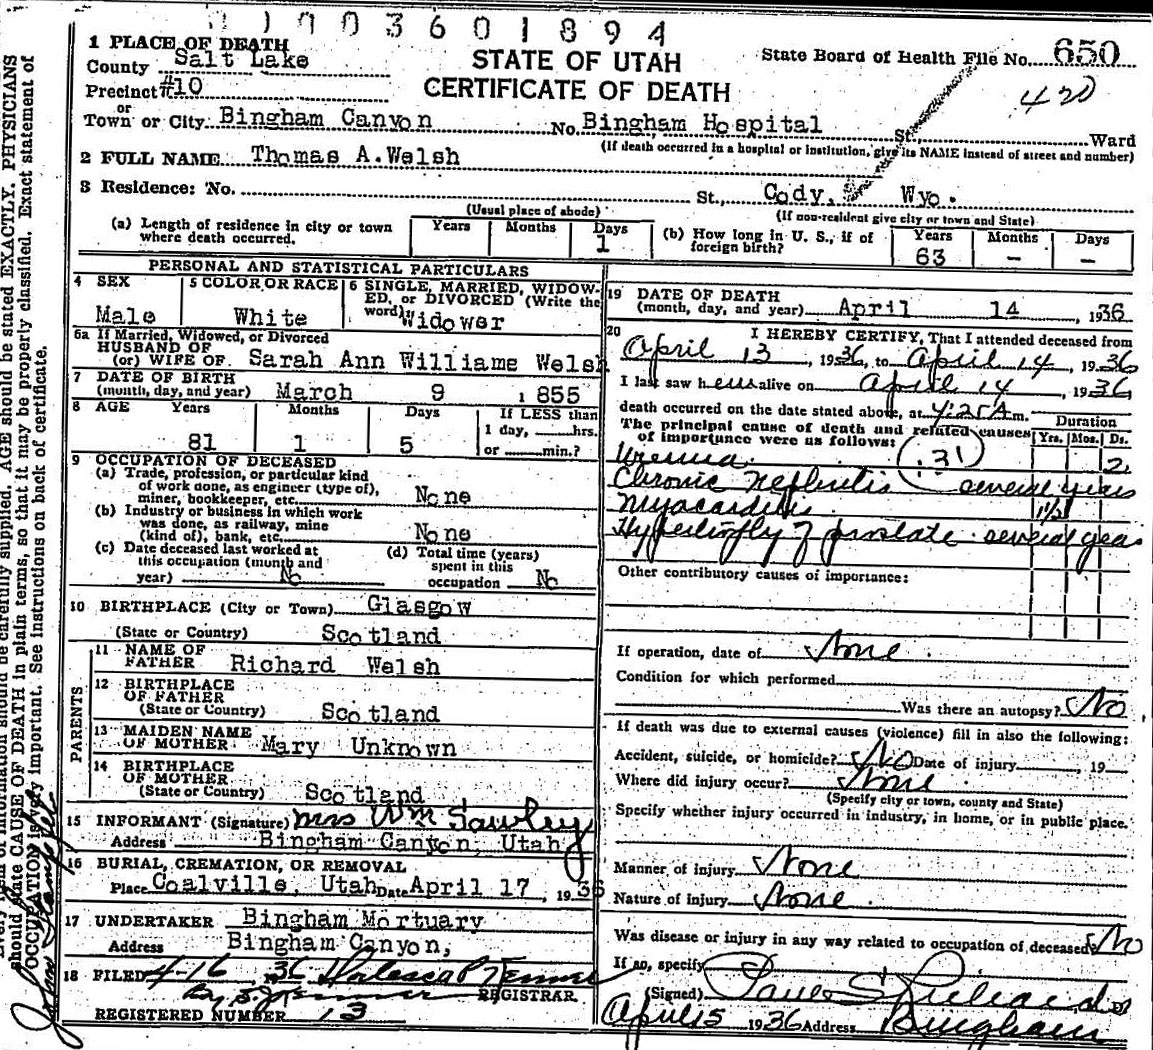 1003601894
1 PLACE OF DEATH
County Salt Lake
Precinct #10
or
Town or City Bingham Canyon No. Bingham Hospital St., Ward
STATE OF UTAH
CERTIFICATE OF DEATH
State Board of Health File No. 650
420
(If death occurred in a hospital or institution, give its NAME instead of street and number)
2 FULL NAME Thomas A. Welsh
3 Residence: No. St., Cody, Wyo.
(Usual place of abode)
(If non-resident give city or town and State)
(a) Length of residence in city or town where death occurred. Years Months Days 1
(b) How long in U. S., if of foreign birth? Years 63 Months - Days -
PERSONAL AND STATISTICAL PARTICULARS
4 SEX Male
5 COLOR OR RACE White
6 SINGLE, MARRIED, WIDOWED, or DIVORCED (Write the word) Widower
6a If Married, Widowed, or Divorced
HUSBAND OF
(or) WIFE OF Sarah Ann Williams Welsh
7 DATE OF BIRTH
(month, day, and year) March 9 1855
8 AGE Years 81 Months 1 Days 5
If LESS than
1 day, hrs.
or min.?
9 OCCUPATION OF DECEASED
(a) Trade, profession, or particular kind
of work done, as engineer (type of),
miner, bookkeeper, etc. None
(b) Industry or business in which work
was done, as railway, mine
(kind of), bank, etc. None
(c) Date deceased last worked at
this occupation (month and
year) No
(d) Total time (years)
spent in this
occupation No
10 BIRTHPLACE (City or Town) Glasgow
(State or Country) Scotland
PARENTS
11 NAME OF
FATHER Richard Welsh
12 BIRTHPLACE
OF FATHER
(State or Country) Scotland
13 MAIDEN NAME
OF MOTHER Mary Unknown
14 BIRTHPLACE
OF MOTHER
(State or Country) Scotland
15 INFORMANT (Signature) Mrs Wm Sawley
Address Bingham Canyon, Utah
16 BURIAL, CREMATION, OR REMOVAL
Place Coalville, Utah Date April 17, 1936
17 UNDERTAKER Bingham Mortuary
Address Bingham Canyon,
18 FILED 4-16 36
REGISTRAR
REGISTERED NUMBER 13
19 DATE OF DEATH
(month, day, and year) April 14, 1936
20 I HEREBY CERTIFY, That I attended deceased from
April 13, 1936, to April 14 1936
I last saw h em alive on April 14, 1936,
death occurred on the date stated above, at 4:25 A m.
The principal cause of death and related causes
of importance were as follows:
Duration
Yrs. Mos. Ds.
Uremia. 131 2
Chronic Nephritis several years
Myocarditis 1½
Hypertrofhy of prostate several years
Other contributory causes of importance:
If operation, date of None
Condition for which performed
Was there an autopsy? No
If death was due to external causes (violence) fill in also the following:
Accident, suicide, or homicide? No Date of injury , 19
Where did injury occur? None
(Specify city or town, county and State)
Specify whether injury occurred in industry, in home, or in public place.
Manner of injury None
Nature of injury None
Was disease or injury in any way related to occupation of deceased? No
If so, specify
(Signed) Paul S Richards
April 15 1936 Address Bingham
should state CAUSE OF DEATH in plain terms, so that it may be properly classified. Exact statement of
OCCUPATION is very important. See instructions on back of certificate.
be carefully supplied. AGE should be stated EXACTLY. PHYSICIANS